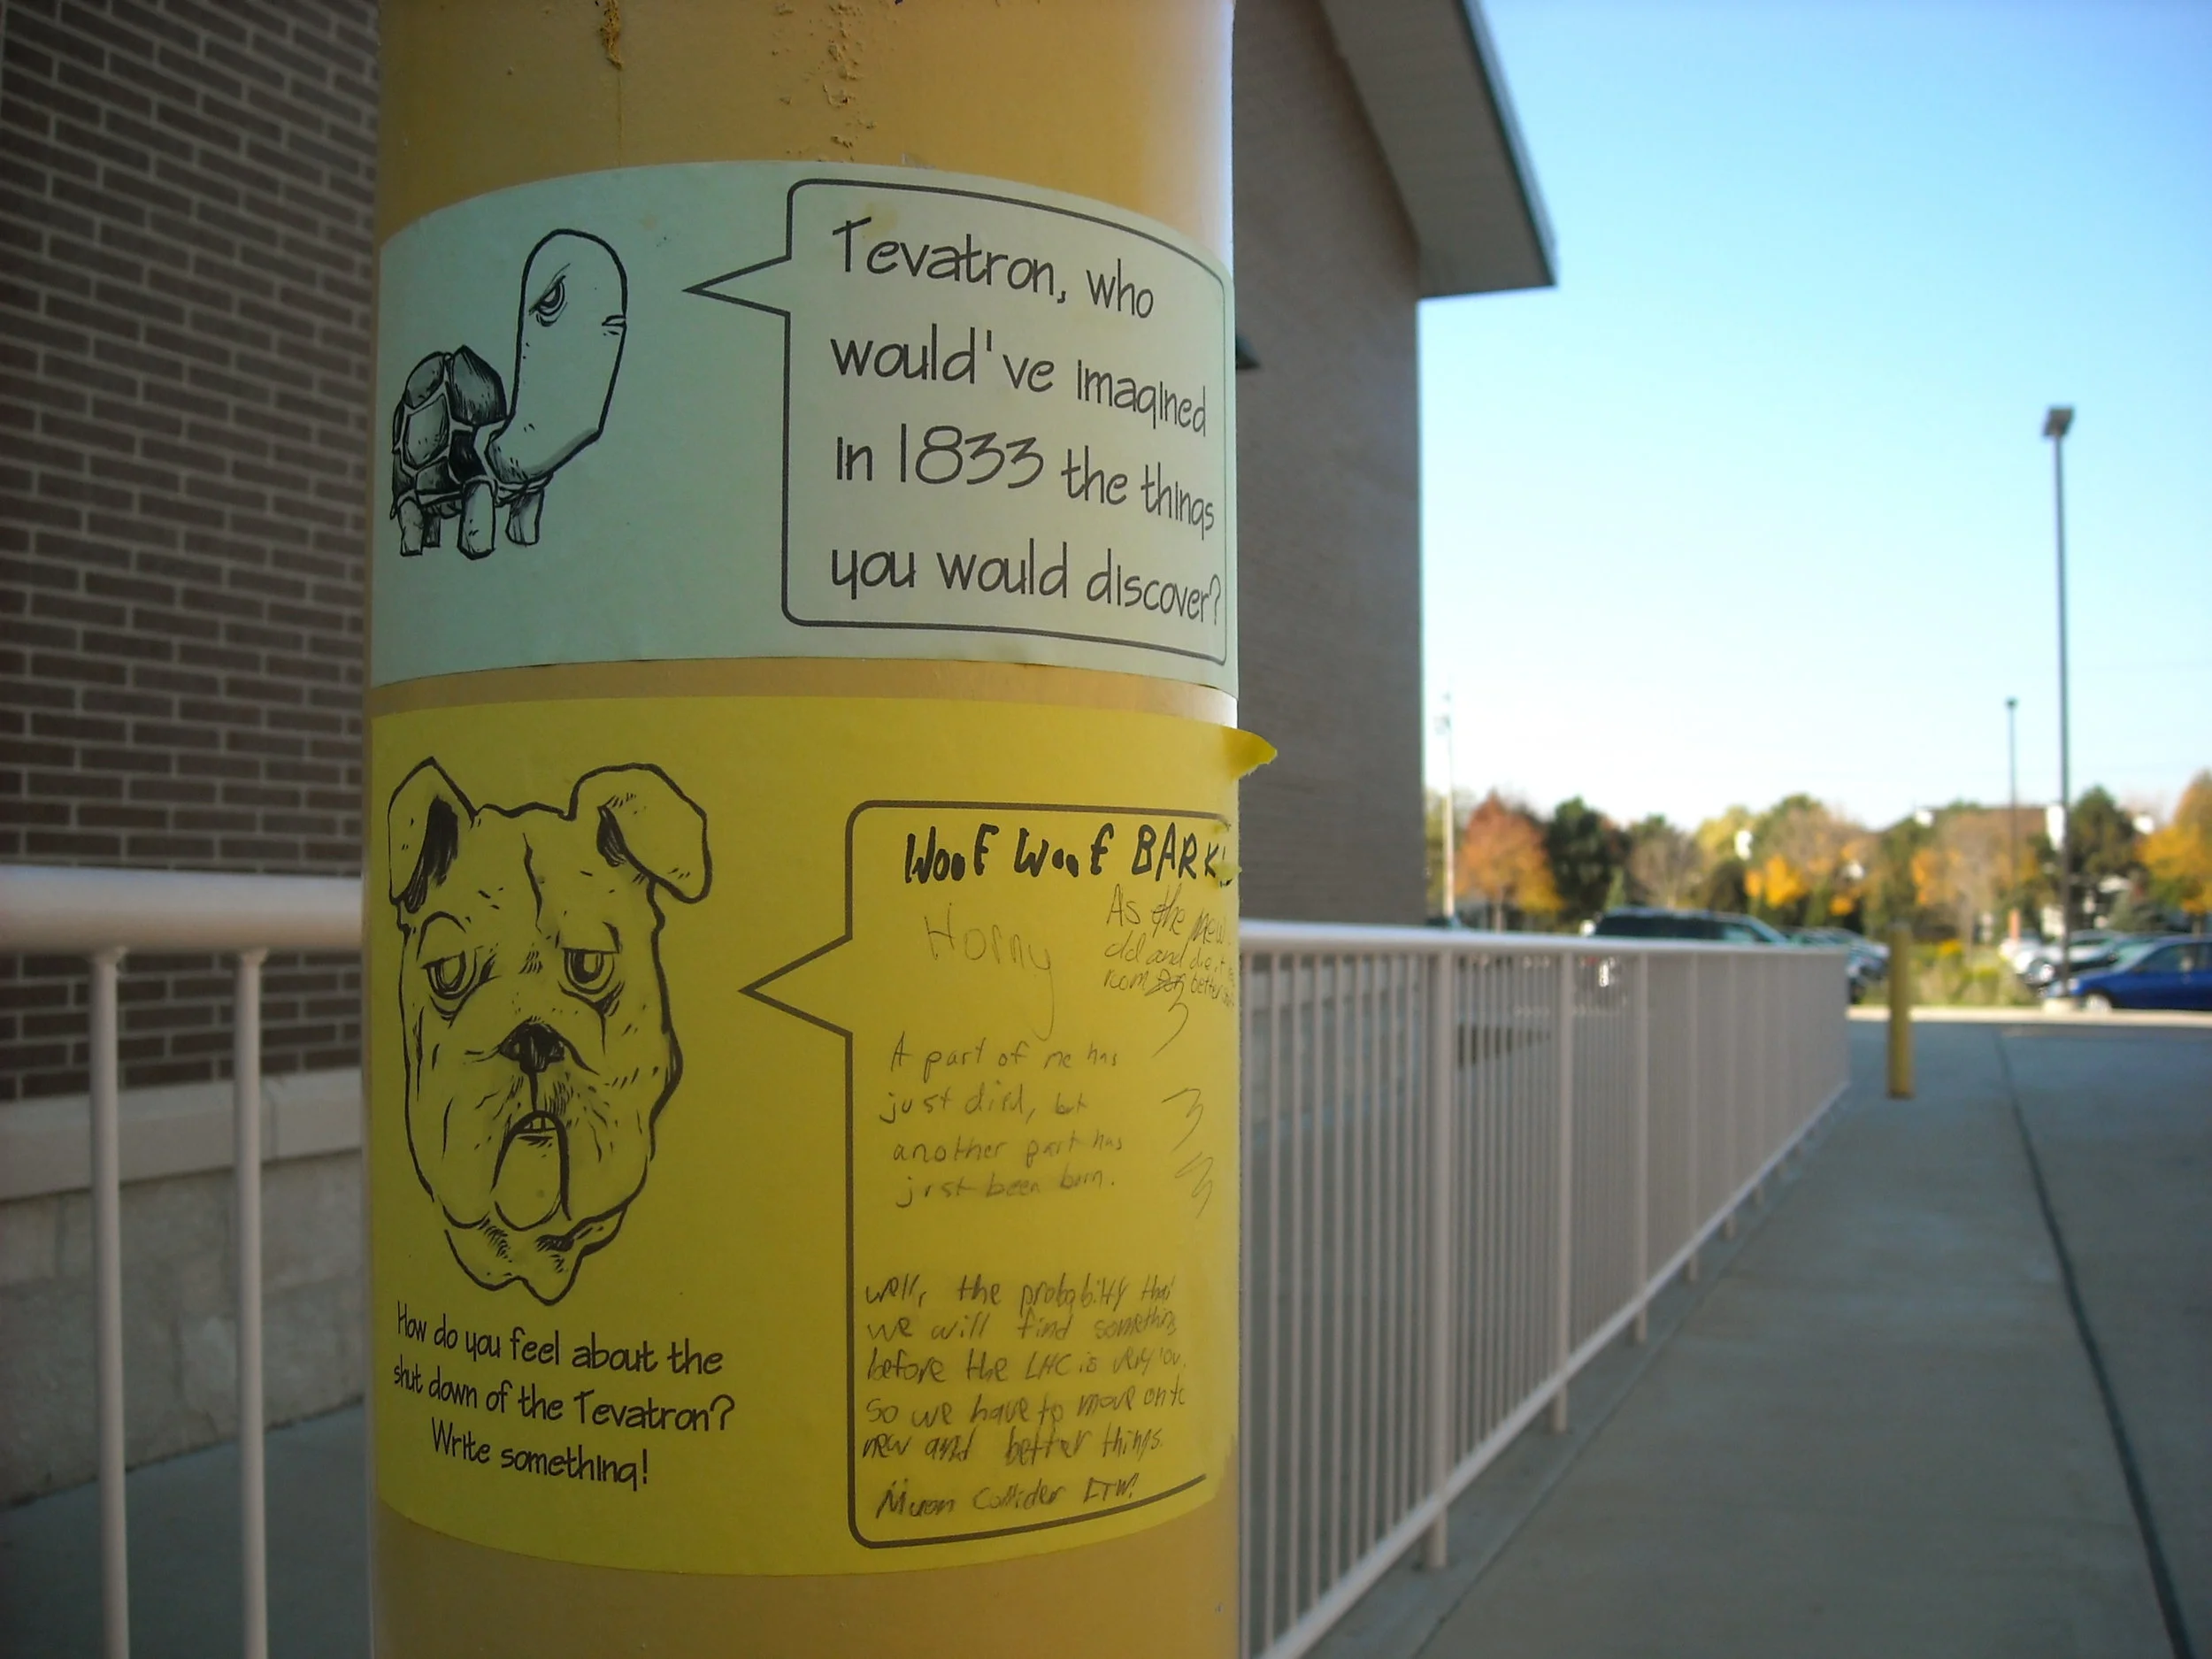 Tevatron, who
would've imagined
in 1833 the things
you would discover?
WooF WooF BARK!
Horny
As the new
old and die, it
room better
A part of me has
just died, but
another part has
just been born.
well, the probability that
we will find something
before the LHC is very low.
So we have to move onto
new and better things.
Muon Collider FTW!
How do you feel about the
shut down of the Tevatron?
Write something!